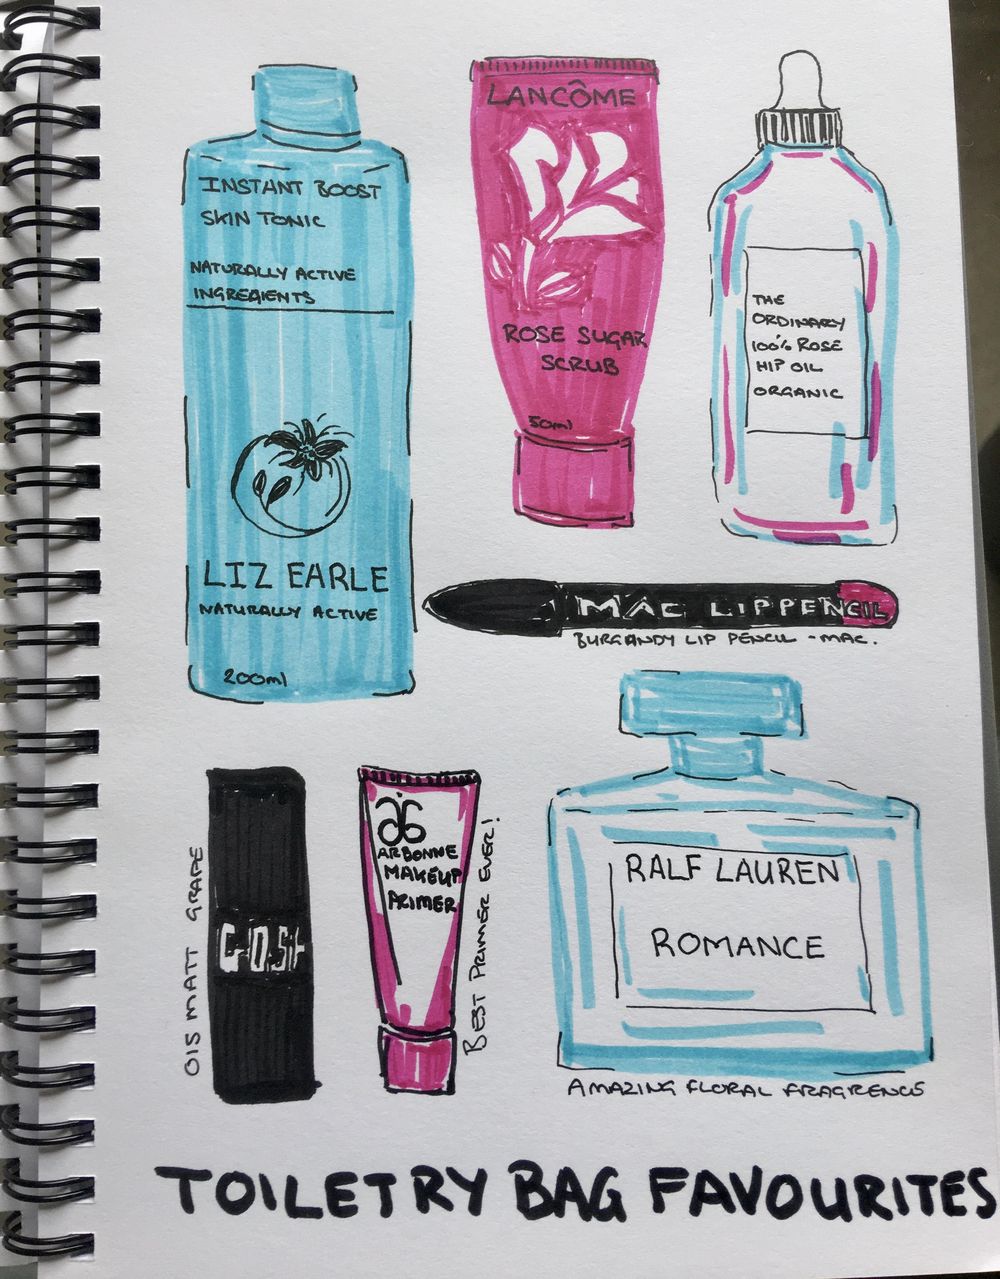 INSTANT BOOST
SKIN TONIC
NATURALLY ACTIVE
INGREDIENTS
LIZ EARLE
NATURALLY ACTIVE
200ml
LANCÔME
ROSE SUGAR
SCRUB
50ml
THE
ORDINARY
100% ROSE
HIP OIL
ORGANIC
MAC LIPPENCIL
BURGANDY LIP PENCIL - MAC.
015 MATT GRAPE
GOSH
ARBONNE
MAKEUP
PRIMER
BEST PRIMER EVER!
RALF LAUREN
ROMANCE
AMAZING FLORAL FRAGRENCE
TOILETRY BAG FAVOURITES